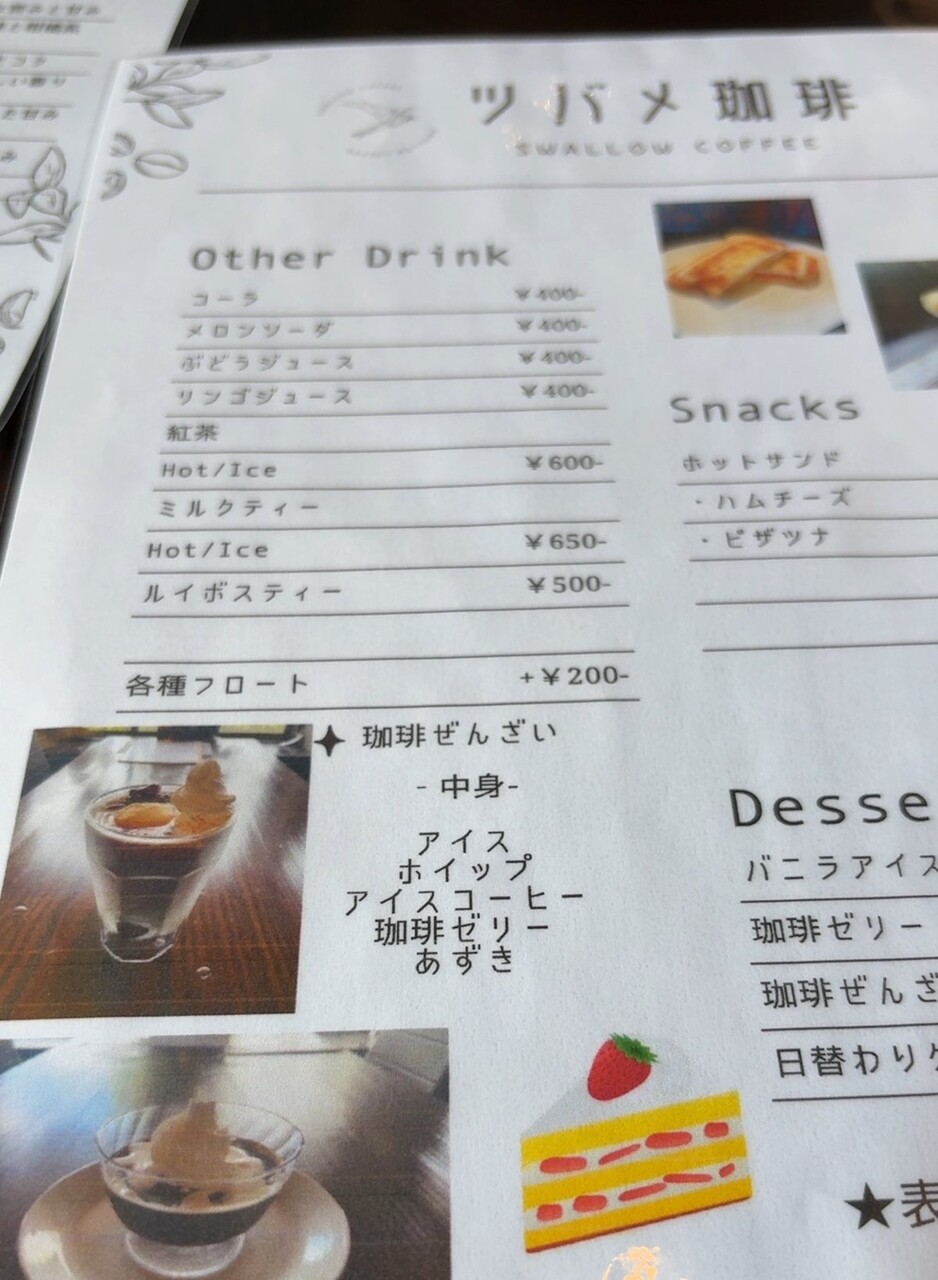 ツバメ珈琲
SWALLOW COFFEE
Other Drink
コーラ ¥400-
メロンソーダ ¥400-
ぶどうジュース ¥400-
リンゴジュース ¥400-
紅茶
Hot/Ice ¥600-
ミルクティー
Hot/Ice ¥650-
ルイボスティー ¥500-
各種フロート +¥200-
Snacks
ホットサンド
・ハムチーズ
・ピザツナ
✦ 珈琲ぜんざい
- 中身-
アイス
ホイップ
アイスコーヒー
珈琲ゼリー
あずき
Desse
バニラアイス
珈琲ゼリー
珈琲ぜんざ
日替わりケ
★表